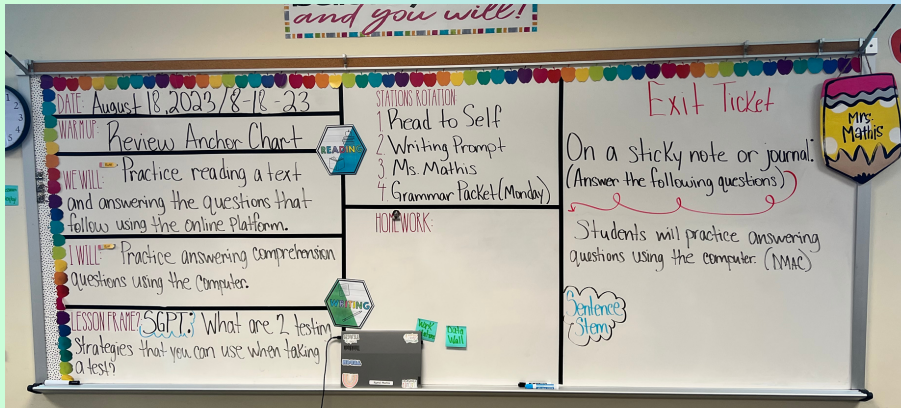 and you will!
DATE: August 18, 2023/8-18-23
WARM UP: Review Anchor Chart
WE WILL: Practice reading a text
and answering the questions that
follow using the online platform.
I WILL: Practice answering comprehension
questions using the computer.
LESSON FRAME? SGPT: What are 2 testing
strategies that you can use when taking
a test?
READING
WRITING
STATIONS ROTATION:
1. Read to Self
2. Writing Prompt
3. Ms. Mathis
4. Grammar Packet (Monday)
HOMEWORK:
Word
Data
Wall
Exit Ticket
On a sticky note or journal:
(Answer the following questions)
Students will practice answering
questions using the computer. (NMAC)
Sentence
Stem
Mrs.
Mathis